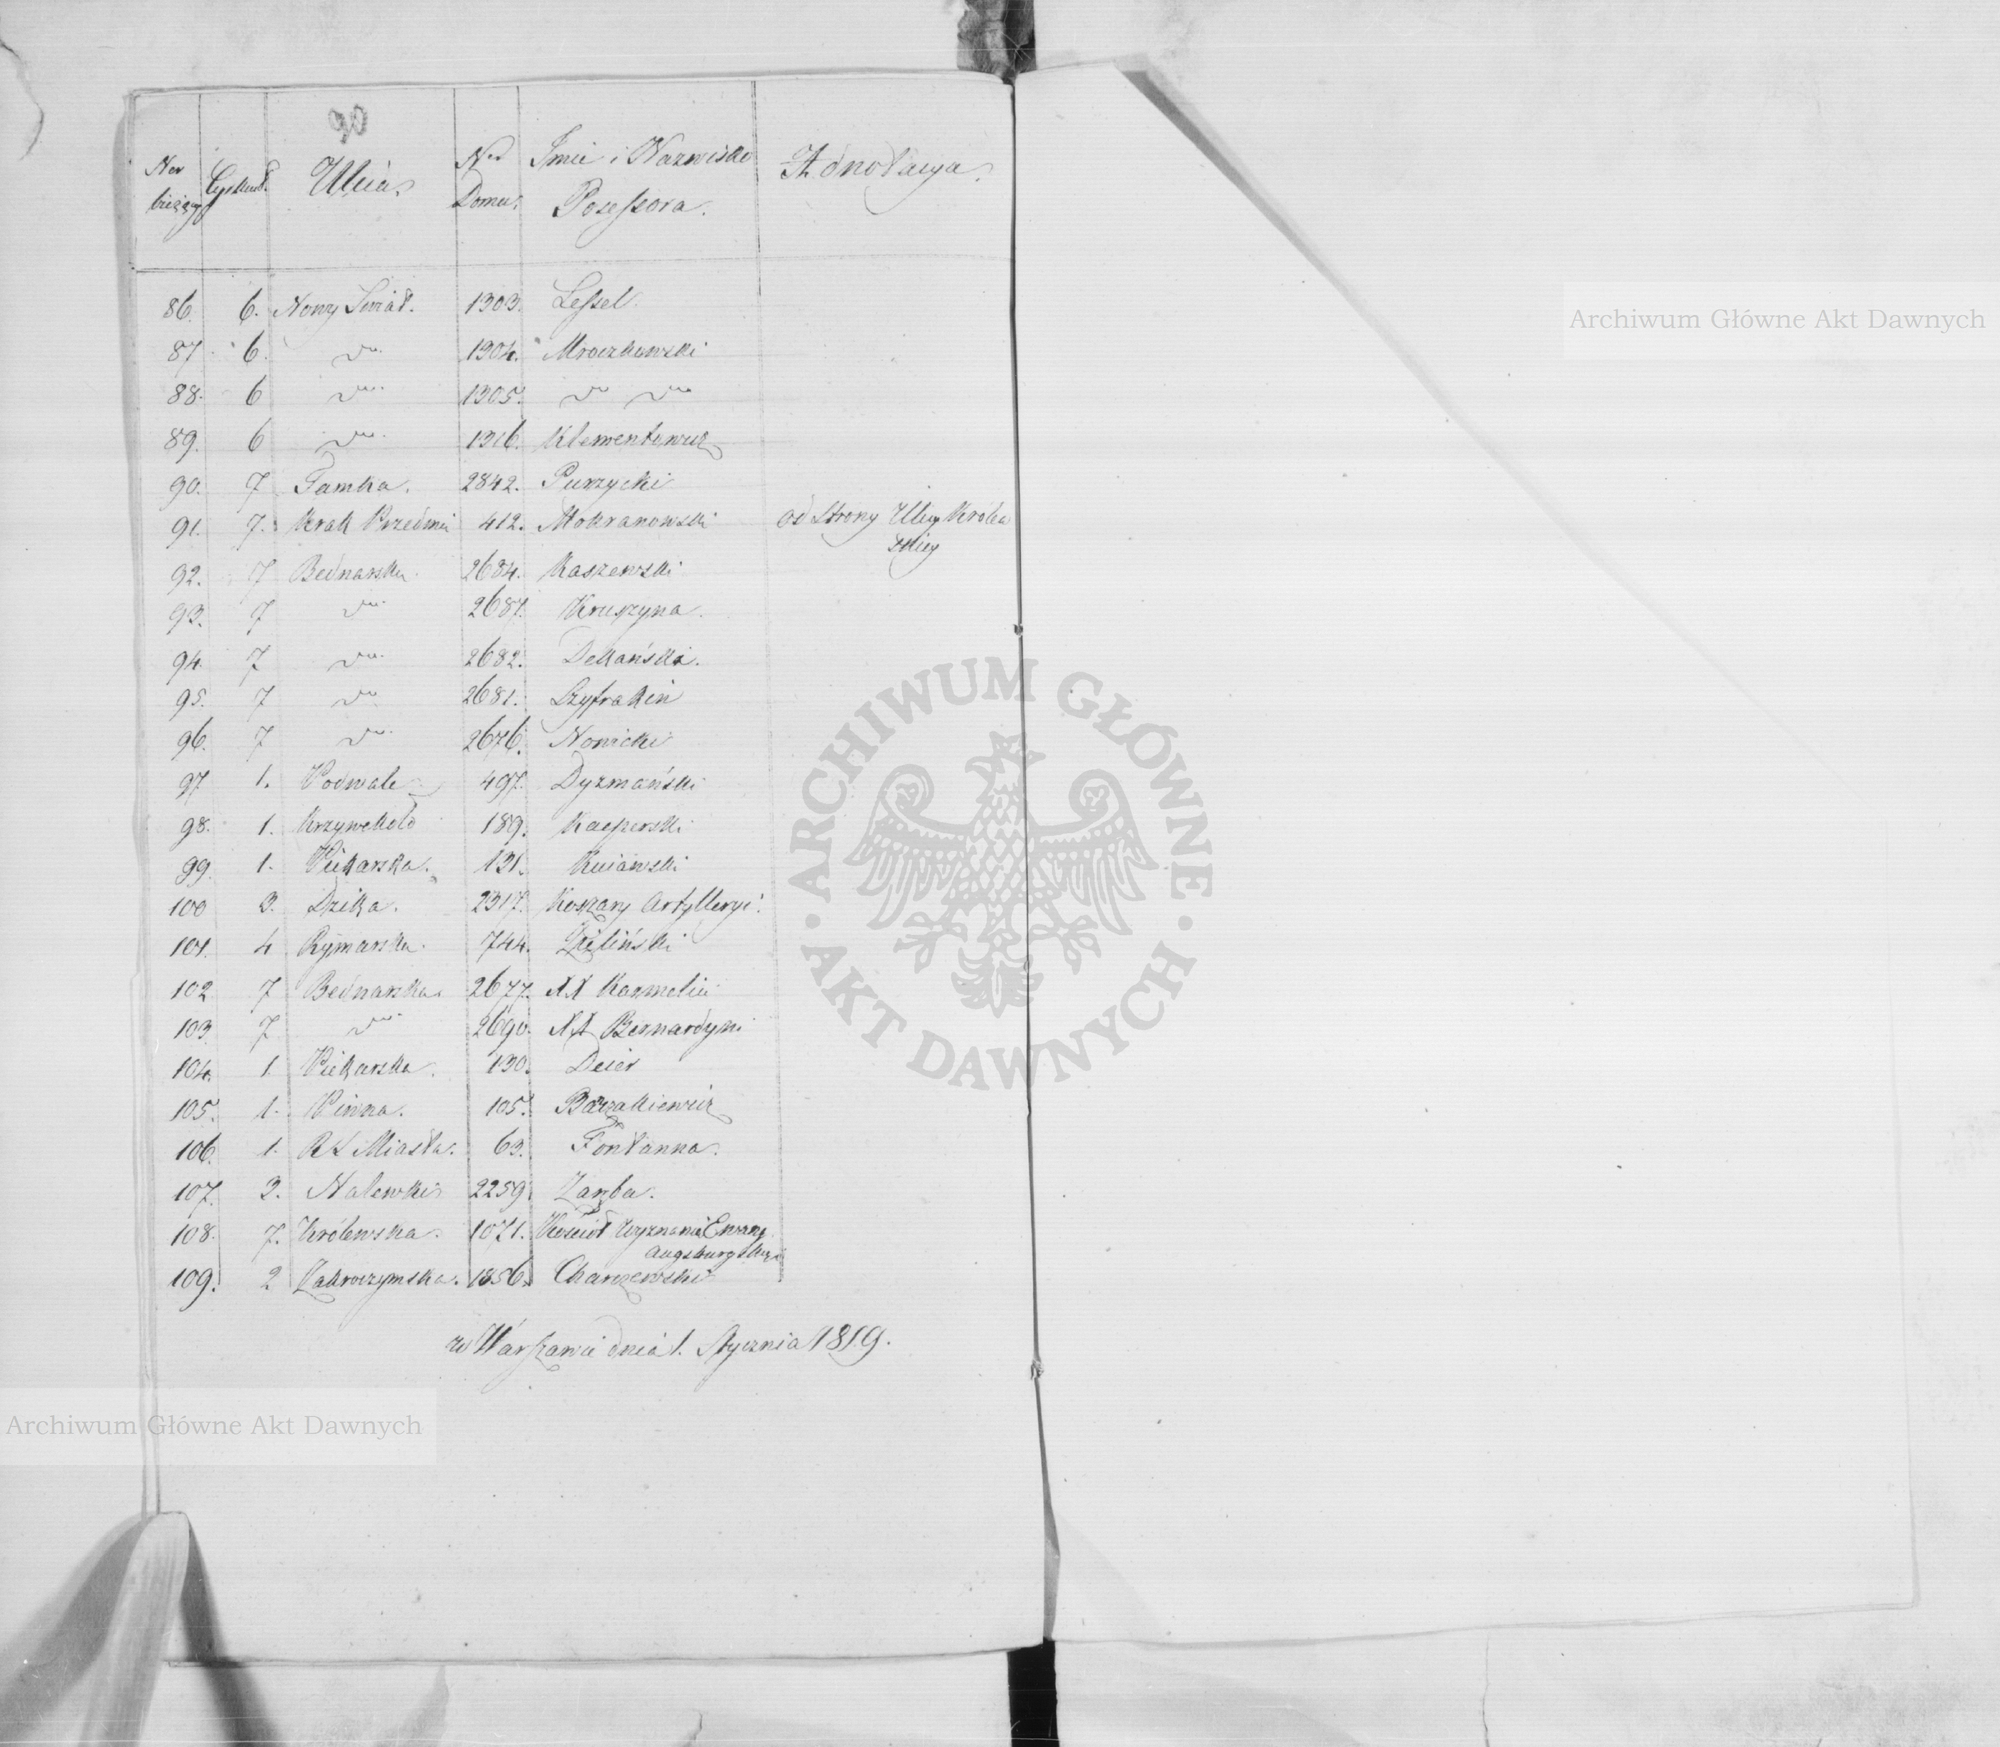 90
Ner bieżący Cyrkuł. Ulica. Ner Domu. Imie i Nazwisko Posessora. Adnotacya.
86. 6. Nowy Swiat. 1303. Lessel.
87. 6. do 1304. Mroczkowski
88. 6 do 1305. do do
89. 6 do 1316. Klementowicz
90. 7 Tamka. 2842. Purzycki
91. 7. Krak Przedmie 412. Mokranowski od strony Ulicy Królewskiey
92. 7 Bednarska 2684. Kaszewski
93. 7 do 2687. Kruszyna.
94. 7 do 2682. Dekański.
95. 7 do 2681. Szyfrakin
96. 7 do 2676. Nowicki
97 1. Podwale 497. Dyzmański
98. 1. Krzywekoło 189. Kacperski
99. 1. Piekarska. 131. Kuiawski
100 3. Dzika. 2317. Koszary Artylleryi.
101. 4 Rymarska. 744. Zieliński
102 7 Bednarska. 2677. XX Karmelici
103. 7 do 2690. XX Bernardyni
104. 1. Piekarska. 130. Deier
105. 1. Piwna. 105.
106. 1. R S Miasta. 63. Fontanna.
107. 3. Nalewki 2259 Zaręba.
108. 7. Królewska. 1071. Kosciół Wyznania Ewang. Augsburgskiego
109. 2 Zakroczymska. 1856. Charzewski
w Warszawie dnia 1. Stycznia 1819.
Archiwum Główne Akt Dawnych
ARCHIWUM GŁÓWNE AKT DAWNYCH
Archiwum Główne Akt Dawnych